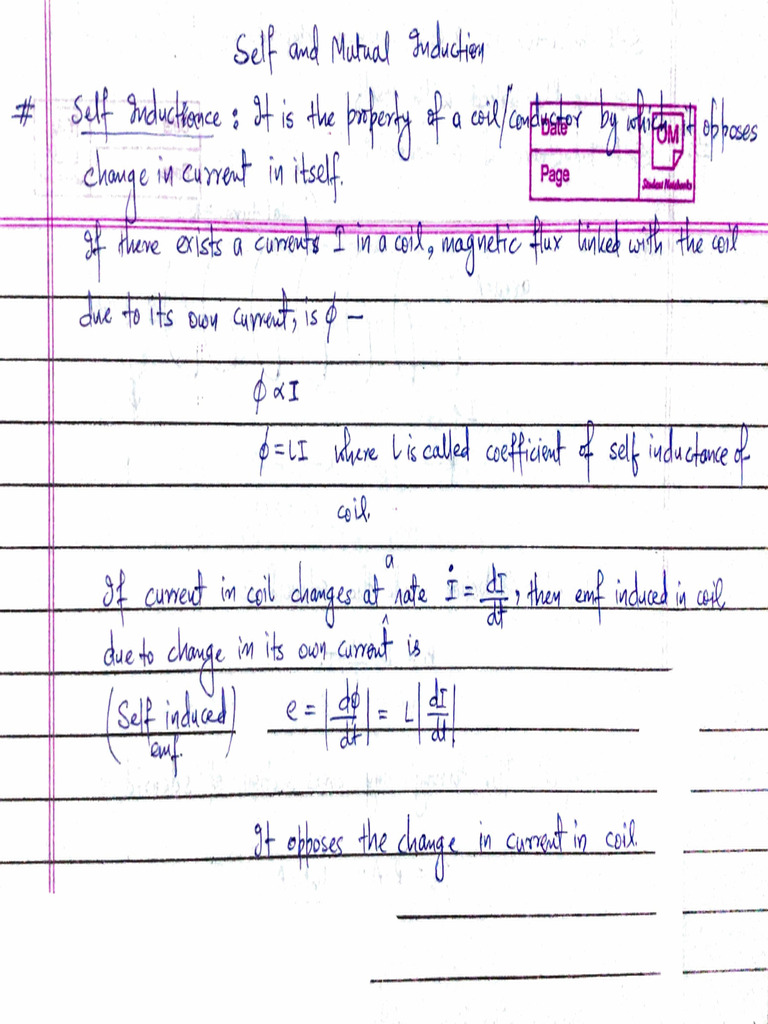 Self and Mutual Induction
# Self Inductance : It is the property of a coil/conductor by which it opposes
Date
OM
change in current in itself.
Page
Student Notebooks
If there exists a currents I in a coil, magnetic flux linked with the coil
due to its own current, is ϕ —
ϕ ∝ I
ϕ = LI where L is called coefficient of self inductance of
coil.
If current in coil changes at a rate İ = dI/dt, then emf induced in coil
due to change in its own current is
(Self induced emf.) e = |dϕ/dt| = L|dI/dt|
It opposes the change in current in coil.